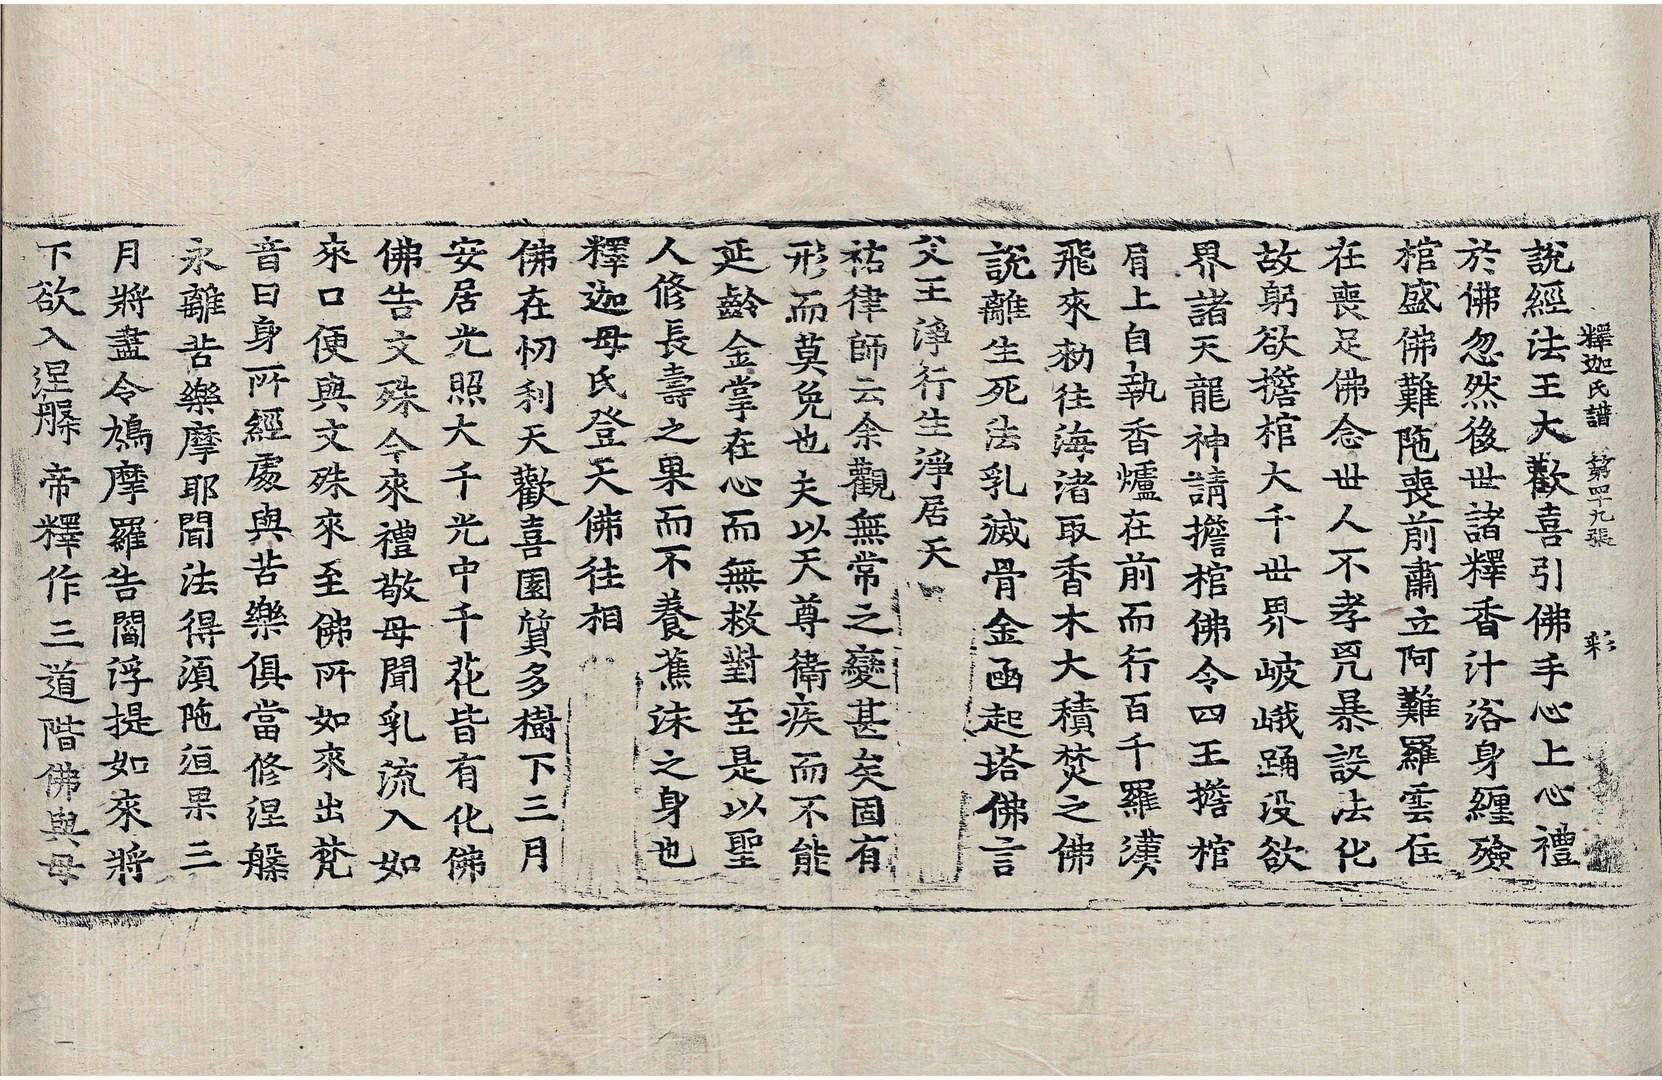 釋迦氏譜 第四十九張 彩
說經法王大歡喜引佛手心上心禮
於佛忽然後世諸釋香汁浴身纏殮
棺盛佛難陁喪前肅立阿難羅雲在
在喪足佛念世人不孝兇暴設法化
故躬欲擔棺大千世界岐峨踊没欲
界諸天龍神請擔棺佛令四王擔棺
肩上自執香爐在前而行百千羅漢
飛來勑往海渚取香木大積焚之佛
說離生死法乳滅骨金函起塔佛言
父王淨行生淨居天
祐律師云余觀無常之變甚矣固有
形而莫免也夫以天尊衛疾而不能
延齡金掌在心而無救對至是以聖
人修長壽之果而不養蕉沫之身也
釋迦母氏登天佛往相
佛在忉利天歡喜園質多樹下三月
安居光照大千光中千花皆有化佛
佛告文殊今來禮敬母聞乳流入如
來口便與文殊來至佛所如來出梵
音曰身所經處與苦樂俱當修涅槃
永離苦樂摩耶聞法得須陁洹果三
月將盡令鳩摩羅告閻浮提如來將
下欲入涅槃帝釋作三道階佛與母